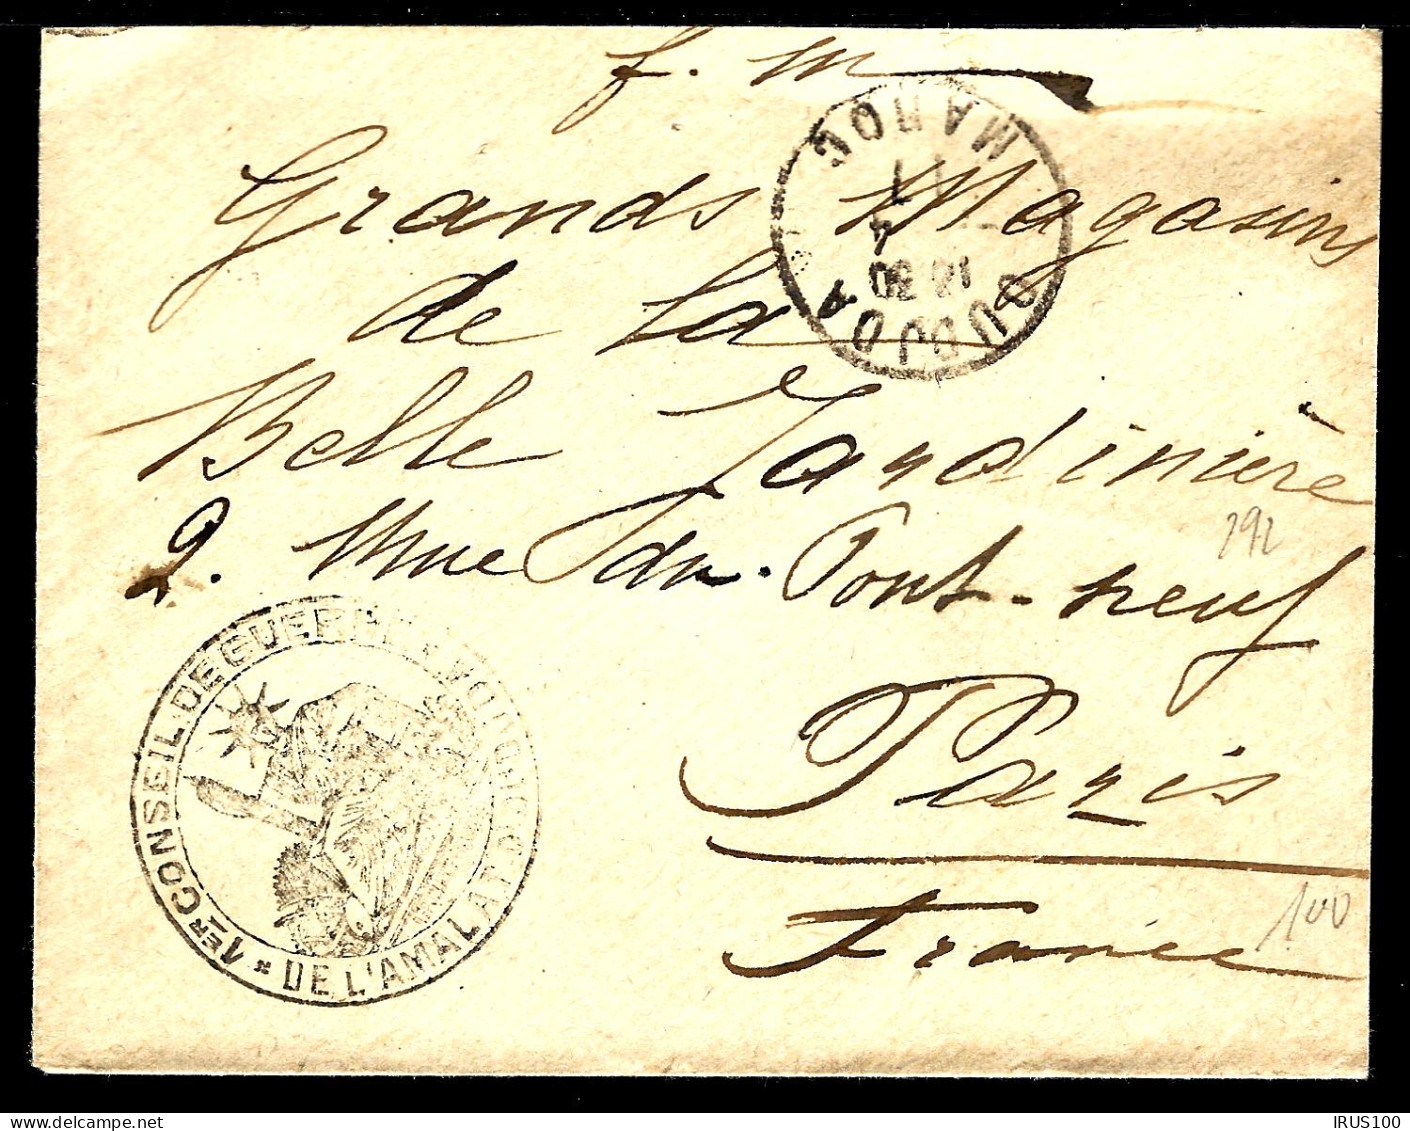 f. m
Grands Magasins
de la
Belle Jardinière
2. Rue du Pont-neuf
Paris
France
OUDJDA
MAROC
18 30
4
11
1ER CONSEIL DE GUERRE
DE L'AMALAT
292
100
www.delcampe.net
IRUS100